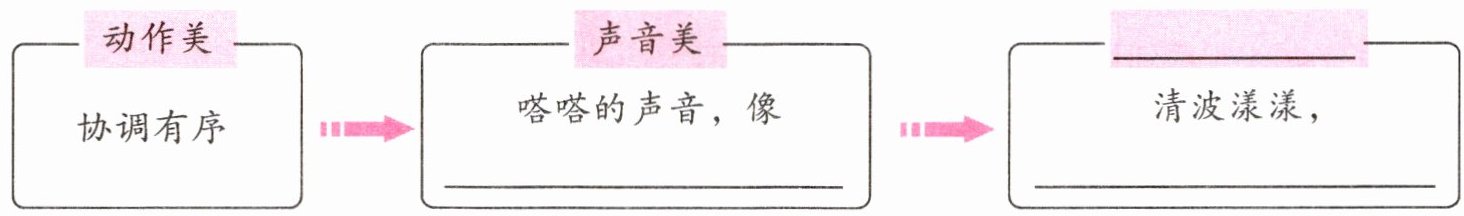 动作美
协调有序
声音美
嗒嗒的声音，像
清波漾漾，